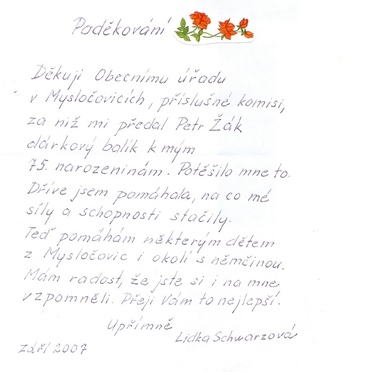 Poděkování
Děkuji Obecnímu úřadu
v Mysločovicích, příslušné komisi,
za niž mi předal Petr Žák
dárkový balík k mým
75. narozeninám. Potěšilo mne to.
Dříve jsem pomáhala, na co mé
síly a schopnosti stačily.
Teď pomáhám některým dětem
z Mysločovic i okolí s němčinou.
Mám radost, že jste si i na mne
vzpomněli. Přeji Vám to nejlepší.
Upřímně
Lidka Schwarzová
září 2007